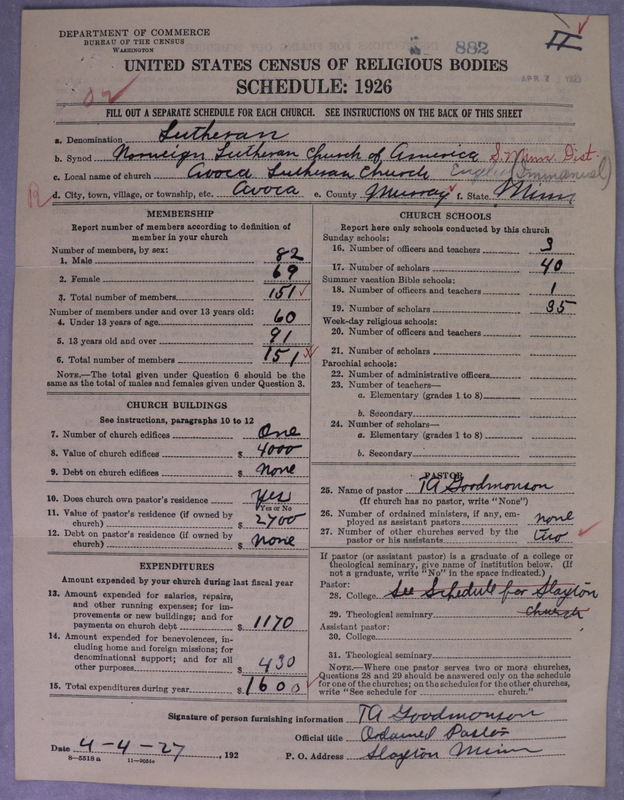 DEPARTMENT OF COMMERCE
BUREAU OF THE CENSUS
WASHINGTON
882
II
UNITED STATES CENSUS OF RELIGIOUS BODIES
SCHEDULE: 1926
APR 2
FILL OUT A SEPARATE SCHEDULE FOR EACH CHURCH. SEE INSTRUCTIONS ON THE BACK OF THIS SHEET
a. Denomination Lutheran
b. Synod Norweign Lutheran Church of America S. Minn. Dist.
c. Local name of church Avoca Lutheran Church English (Immanuel)
d. City, town, village, or township, etc. Avoca e. County Murray f. State Minn
MEMBERSHIP
Report number of members according to definition of
member in your church
Number of members, by sex:
1. Male 82
2. Female 69
3. Total number of members 151
Number of members under and over 13 years old:
4. Under 13 years of age 60
5. 13 years old and over 91
6. Total number of members 151
NOTE.—The total given under Question 6 should be the
same as the total of males and females given under Question 3.
CHURCH BUILDINGS
See instructions, paragraphs 10 to 12
7. Number of church edifices One
8. Value of church edifices $ 4000
9. Debt on church edifices $ None
10. Does church own pastor's residence yes
Yes or No
11. Value of pastor's residence (if owned by
church) $ 2700
12. Debt on pastor's residence (if owned by
church) $ None
EXPENDITURES
Amount expended by your church during last fiscal year
13. Amount expended for salaries, repairs,
and other running expenses; for im-
provements or new buildings; and for
payments on church debt $ 1170
14. Amount expended for benevolences, in-
cluding home and foreign missions; for
denominational support; and for all
other purposes $ 430
15. Total expenditures during year $ 1600
CHURCH SCHOOLS
Report here only schools conducted by this church
Sunday schools:
16. Number of officers and teachers 3
17. Number of scholars 40
Summer vacation Bible schools:
18. Number of officers and teachers 1
19. Number of scholars 35
Week-day religious schools:
20. Number of officers and teachers
21. Number of scholars
Parochial schools:
22. Number of administrative officers
23. Number of teachers—
a. Elementary (grades 1 to 8)
b. Secondary
24. Number of scholars—
a. Elementary (grades 1 to 8)
b. Secondary
PASTOR
25. Name of pastor TA Goodmonson
(If church has no pastor, write "None")
26. Number of ordained ministers, if any, em-
ployed as assistant pastors none
27. Number of other churches served by the
pastor or his assistants two
If pastor (or assistant pastor) is a graduate of a college or
theological seminary, give name of institution below. (If
not a graduate, write "No" in the space indicated.)
Pastor:
28. College See Schedule for Slayton
29. Theological seminary church
Assistant pastor:
30. College
31. Theological seminary
NOTE.—Where one pastor serves two or more churches,
Questions 28 and 29 should be answered only on the schedule
for one of the churches; on the schedules for the other churches,
write "See schedule for church."
Signature of person furnishing information TA Goodmonson
Official title Ordained Pastor
Date 4-4-27, 192 P. O. Address Slayton Minn
8—5518 a